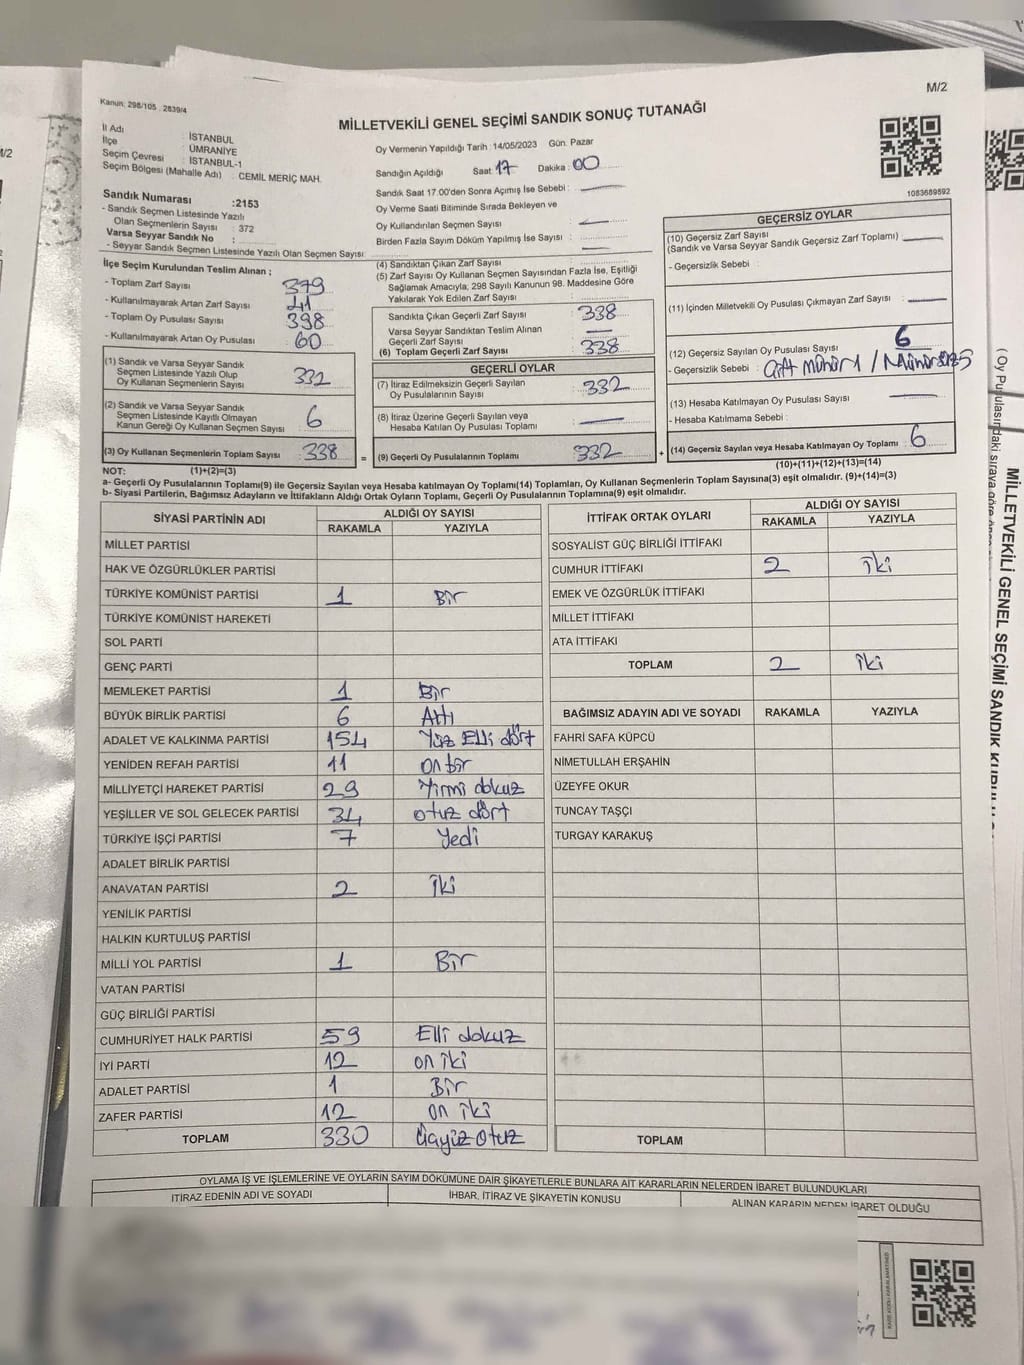 M/2
Kanun: 298/105 . 2839/4
MİLLETVEKİLİ GENEL SEÇİMİ SANDIK SONUÇ TUTANAĞI
İl Adı : İSTANBUL
İlçe : ÜMRANİYE
Seçim Çevresi : İSTANBUL-1
Seçim Bölgesi (Mahalle Adı) : CEMİL MERİÇ MAH.
Sandık Numarası :2153
- Sandık Seçmen Listesinde Yazılı
Olan Seçmenlerin Sayısı : 372
Varsa Seyyar Sandık No :
- Seyyar Sandık Seçmen Listesinde Yazılı Olan Seçmen Sayısı :
İlçe Seçim Kurulundan Teslim Alınan ;
- Toplam Zarf Sayısı : 379
- Kullanılmayarak Artan Zarf Sayısı : 41
- Toplam Oy Pusulası Sayısı : 398
- Kullanılmayarak Artan Oy Pusulası : 60
(1) Sandık ve Varsa Seyyar Sandık
Seçmen Listesinde Yazılı Olup
Oy Kullanan Seçmenlerin Sayısı : 332
(2) Sandık ve Varsa Seyyar Sandık
Seçmen Listesinde Kayıtlı Olmayan
Kanun Gereği Oy Kullanan Seçmen Sayısı : 6
(3) Oy Kullanan Seçmenlerin Toplam Sayısı : 338
Oy Vermenin Yapıldığı Tarih : 14/05/2023 Gün. Pazar
Sandığın Açıldığı Saat : 17 Dakika : 00
Sandık Saat 17.00'den Sonra Açımış İse Sebebi :
Oy Verme Saati Bitiminde Sırada Bekleyen ve
Oy Kullandırılan Seçmen Sayısı :
Birden Fazla Sayım Döküm Yapılmış İse Sayısı :
(4) Sandıktan Çıkan Zarf Sayısı :
(5) Zarf Sayısı Oy Kullanan Seçmen Sayısından Fazla İse, Eşitliği
Sağlamak Amacıyla, 298 Sayılı Kanunun 98. Maddesine Göre
Yakılarak Yok Edilen Zarf Sayısı :
Sandıkta Çıkan Geçerli Zarf Sayısı : 338
Varsa Seyyar Sandıktan Teslim Alınan
Geçerli Zarf Sayısı :
(6) Toplam Geçerli Zarf Sayısı : 338
GEÇERLİ OYLAR
(7) İtiraz Edilmeksizin Geçerli Sayılan
Oy Pusulalarının Sayısı : 332
(8) İtiraz Üzerine Geçerli Sayılan veya
Hesaba Katılan Oy Pusulası Toplamı :
= (9) Geçerli Oy Pusulalarının Toplamı : 332
1083689892
GEÇERSİZ OYLAR
(10) Geçersiz Zarf Sayısı
(Sandık ve Varsa Seyyar Sandık Geçersiz Zarf Toplamı)
- Geçersizlik Sebebi :
(11) İçinden Milletvekili Oy Pusulası Çıkmayan Zarf Sayısı :
(12) Geçersiz Sayılan Oy Pusulası Sayısı : 6
- Geçersizlik Sebebi :
(13) Hesaba Katılmayan Oy Pusulası Sayısı :
- Hesaba Katılmama Sebebi :
+ (14) Geçersiz Sayılan veya Hesaba Katılmayan Oy Toplamı : 6
NOT: (1)+(2)=(3) (10)+(11)+(12)+(13)=(14)
a- Geçerli Oy Pusulalarının Toplamı(9) ile Geçersiz Sayılan veya Hesaba katılmayan Oy Toplamı(14) Toplamları, Oy Kullanan Seçmenlerin Toplam Sayısına(3) eşit olmalıdır. (9)+(14)=(3)
b- Siyasi Partilerin, Bağımsız Adayların ve İttifakların Aldığı Ortak Oyların Toplamı, Geçerli Oy Pusulalarının Toplamına(9) eşit olmalıdır.
SİYASİ PARTİNİN ADI ALDIĞI OY SAYISI
RAKAMLA YAZIYLA
MİLLET PARTİSİ
HAK VE ÖZGÜRLÜKLER PARTİSİ
TÜRKİYE KOMÜNİST PARTİSİ 1 Bir
TÜRKİYE KOMÜNİST HAREKETİ
SOL PARTİ
GENÇ PARTİ
MEMLEKET PARTİSİ 1 Bir
BÜYÜK BİRLİK PARTİSİ 6 Altı
ADALET VE KALKINMA PARTİSİ 154 Yüz Elli dört
YENİDEN REFAH PARTİSİ 11 On bir
MİLLİYETÇİ HAREKET PARTİSİ 29 Yirmi dokuz
YEŞİLLER VE SOL GELECEK PARTİSİ 34 otuz dört
TÜRKİYE İŞÇİ PARTİSİ 7 Yedi
ADALET BİRLİK PARTİSİ
ANAVATAN PARTİSİ 2 İki
YENİLİK PARTİSİ
HALKIN KURTULUŞ PARTİSİ
MİLLİ YOL PARTİSİ 1 Bir
VATAN PARTİSİ
GÜÇ BİRLİĞİ PARTİSİ
CUMHURİYET HALK PARTİSİ 59 Elli dokuz
İYİ PARTİ 12 on iki
ADALET PARTİSİ 1 Bir
ZAFER PARTİSİ 12 on iki
TOPLAM 330 Üçyüz otuz
İTTİFAK ORTAK OYLARI ALDIĞI OY SAYISI
RAKAMLA YAZIYLA
SOSYALİST GÜÇ BİRLİĞİ İTTİFAKI
CUMHUR İTTİFAKI 2 iki
EMEK VE ÖZGÜRLÜK İTTİFAKI
MİLLET İTTİFAKI
ATA İTTİFAKI
TOPLAM 2 iki
BAĞIMSIZ ADAYIN ADI VE SOYADI RAKAMLA YAZIYLA
FAHRİ SAFA KÜPCÜ
NİMETULLAH ERŞAHİN
ÜZEYFE OKUR
TUNCAY TAŞÇI
TURGAY KARAKUŞ
TOPLAM
OYLAMA İŞ VE İŞLEMLERİNE VE OYLARIN SAYIM DÖKÜMÜNE DAİR ŞİKAYETLERLE BUNLARA AİT KARARLARIN NELERDEN İBARET BULUNDUKLARI
İTİRAZ EDENİN ADI VE SOYADI İHBAR, İTİRAZ VE ŞİKAYETİN KONUSU ALINAN KARARIN NEDEN İBARET OLDUĞU
MİLLETVEKİLİ GENEL SEÇİMİ SANDIK